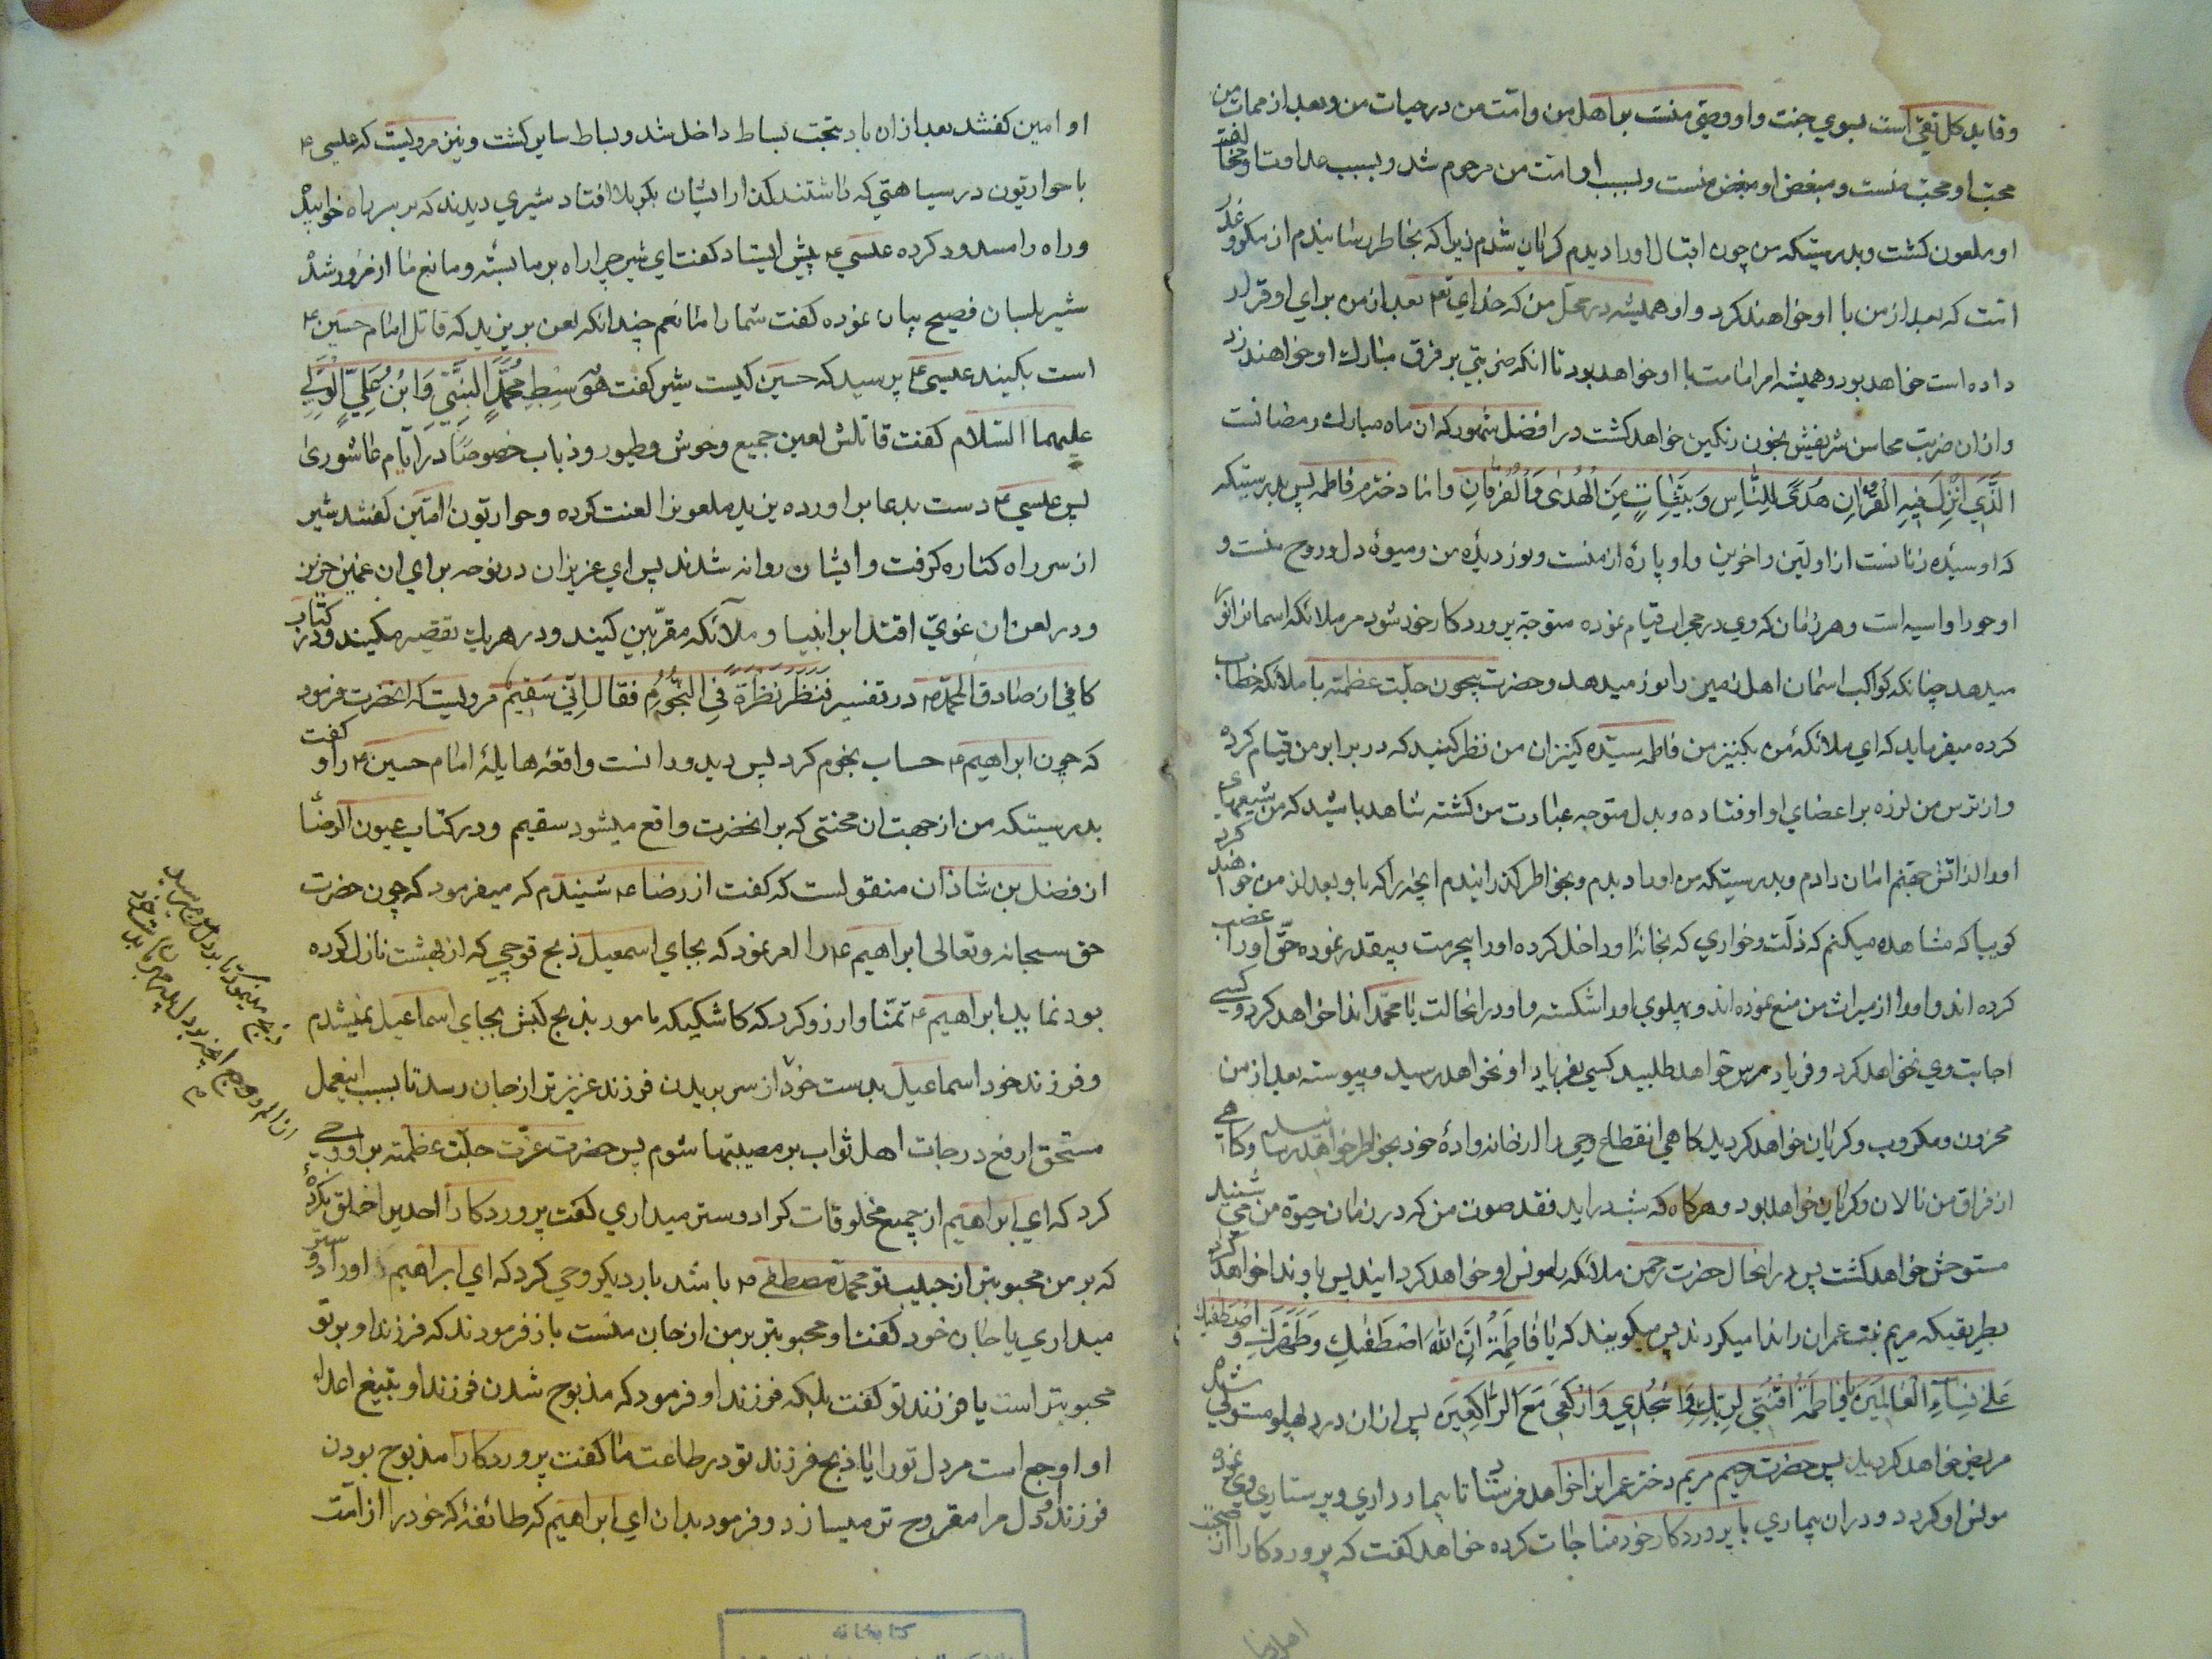 وقاید کل تقی است بسوی جنت و او وصی منست بر اهل من و امت من در حیات من و بعد از ممات من
محب او محب منست و مبغض او مبغض منست و بسبب او امت من مرحوم شد و بسبب عداوت او مخالفت
او ملعون کشت و بدرستیکه من چون اقبال او را دیدم کریان شدم زیرا که بخاطر رسانیدم از مکر و غدر
امت که بعد از من با او خواهند کرد و او همیشه در محل من که خدای تع بعد از من برای او قرار
داده است خواهد بود و همیشه امر امامت با او خواهد بود تا انکه ضربتی بر فرق مبارک او خواهند زد
و از ان ضربت محاسن شریفش بخون رنکین خواهد کشت در افضل شهور که ان ماه مبارک رمضانست
الَّذِي اُنْزِلَ فِيهِ الْقُرْاٰنِ هُدًى لِلنَّاسِ وَبَيِّنَاتٍ مِنَ الْهُدٰى وَالْفُرْقَانِ و اما دخترم فاطمه پس بدرستیکه
که او سیّده زنانست از اولین و اخرین و او پارهٔ از منست و نور دیدهٔ من و میوهٔ دل و روح منست و
او حورا و اسیه است و هر زمان که وی در محراب قیام نموده متوجه پروردکار خود شود مر ملائکه اسمانرا نور
میدهد چنانکه کواکب اسمان اهل زمین را نور میدهد و حضرت بیچون جلت عظمته با ملائکه خطاب
کرده میفرماید که ای ملائکهٔ من بکنیز من فاطمه سیّده کنیزان من نظر کنید که در برابر من قیام کرده
و از ترس من لرزه بر اعضای او اوفتاده و بدل متوجه عبادت من کشته شاهد باشید که من شیعهای
او را از اتش جهنم امان دادم و بدرستیکه من او را دیدم و بخاطر کذرانیدم انچه را که با و بعد از من خواهند کرد
کوییا که مشاهده میکنم که ذلت و خواری که بخانهٔ او داخل کرده او را بیحرمت و بیقدر نموده حق او را غصب
کرده اند و او را از میراث من منع نموده اند و پهلوی او را شکسته و او در انحالت یا محمدا ندا خواهد کرد و کسی
اجابت وی نخواهد کرد و فریاد مرس خواهد طلبید کسی بفریاد او نخواهد رسید و پیوسته بعد از من
محزون و مکروب و کریان خواهد کردید کاهی انقطاع وحی را از خانه وادهٔ خود بخاطر خواهد رسانید و کاهی
از فراق من نالان و کریان خواهد بود و هرکاه که شب در اید فقد صوت من که در زمان حیوة من می شنید
مستوحش خواهد کشت پس در انحال حضرت رحمن ملائکه را مونس او خواهد کردانید پس با و ندا خواهند کرد
بطریقیکه مریم بنت عمران را ندا میکردند پس میکویند که یٰا فٰاطِمَةُ اِنَّ اللّٰهَ اصْطَفٰیكِ وَطَهَّرَكِ وَ اصْطَفٰیكِ
عَلٰى نِسٰاءِ الْعٰالَمِينَ يٰا فٰاطِمَةُ اقْنُتِي لِرَبِّكِ وَاسْجُدِي وَارْكَعِي مَعَ الرّٰاكِعِينَ پس از ان درد پهلو مستولی شده
مریض خواهد کردید پس حضرت رحیم مریم دختر عمرانرا خواهد فرستاد تا بیمارداری و پرستاری وی نموده
مونس او کردد و در ان بیماری با پروردکار خود مناجات کرده خواهد کفت که پروردکارا از
او امین کفتند بعد از ان باد بتحت بساط داخل شد و بساط سایر کشت و نیز مرویست که عیسی ع
با حواریون در سیاحتی که داشتند کذار ایشان بکربلا افتاد شیری دیدند که بر سر راه خوابیده
و راه را مسدود کرده عیسی ع پیش ایستاد کفت ای شیر چرا راه بر ما بسته و مانع ما از مرور شده
شیر بلسان فصیح بیان نموده کفت شما را مانعم چندانکه لعن بر یزید که قاتل امام حسین ع
است بکنید عیسی ع پرسید که حسین کیست شیر کفت هُوَ سِبْطِ مُحَمَّدٍ النَّبِيِّ وَابْنُ عَلِيٍّ الْوَلِيِّ
علیهما السلام کفت قاتلش لعین جمیع وحوش و طیور و ذباب خصوصا در ایام عاشورٰی
پس عیسی ع دست بدعا براورده یزید ملعونرا لعنت کرده و حواریون امین کفتند شیر
از سر راه کناره کرفت و ایشان روانه شدند پس ای عزیزان در نوحه برای ان غمین حزین
و در لعن ان غوی اقتدا بر انبیا و ملائکه مقربین کنید و در هر یک تقصیر مکنید و در کتاب
کافی از صادق ال محمد ع در تفسیر فَنَظَرَ نَظْرَةً فِي النُّجُومِ فَقَالَ اِنِّي سَقِيمٌ مرویست که انحضرت فرمود
که چون ابراهیم ع حساب نجوم کرد پس دید و دانست واقعهٔ هایلهٔ امام حسین ع را و کفت
بدرستیکه من از جهت ان محنتی که بر انحضرت واقع میشود سقیم و در کتاب عیون الرضا
از فضل بن شاذان منقولست که کفت از رضا ع شنیدم که میفرمود که چون حضرت
حق سبحانه و تعالی ابراهیم ع را امر نمود که بجای اسمعیل ذبح قوچی که از بهشت نازل کرده
بود نماید ابراهیم ع تمنا و ارزو کرد که کاشکیکه مامور بذبح کبش بجای اسماعیل نمیشدم
و فرزند خود اسماعیل بدست خود از سر بریدن فرزند عزیزتر از جان رسد تا بسبب اینعمل
مستحق ارفع درجات اهل ثواب بر مصیبتها شوم پس حضرت عزّت جلت عظمته بر او وحی
کرد که ای ابراهیم از جمیع مخلوقات کرا دوستر میداری کفت پروردکارا احدیرا خلق نکردهٔ
که بر من محبوبتر از حبیب تو محمد مصطفی ص باشد بار دیکر وحی کرد که ای ابراهیم او را دوستر
میداری یا جان خود کفت او محبوبتر بر من از جان منست باز فرمودند که فرزند او بر تو
محبوبتر است یا فرزند تو کفت بلکه فرزند او فرمود که مذبوح شدن فرزند او بتیغ اعداء
او اوجع است مر دل تو را یا ذبح فرزند تو در طاعت ما کفت پروردکارا مذبوح بودن
فرزند او دل مرا مقروح تر میسازد و فرمود بدان ای ابراهیم که طائفهٔ که خود را از امت
کتابخانه